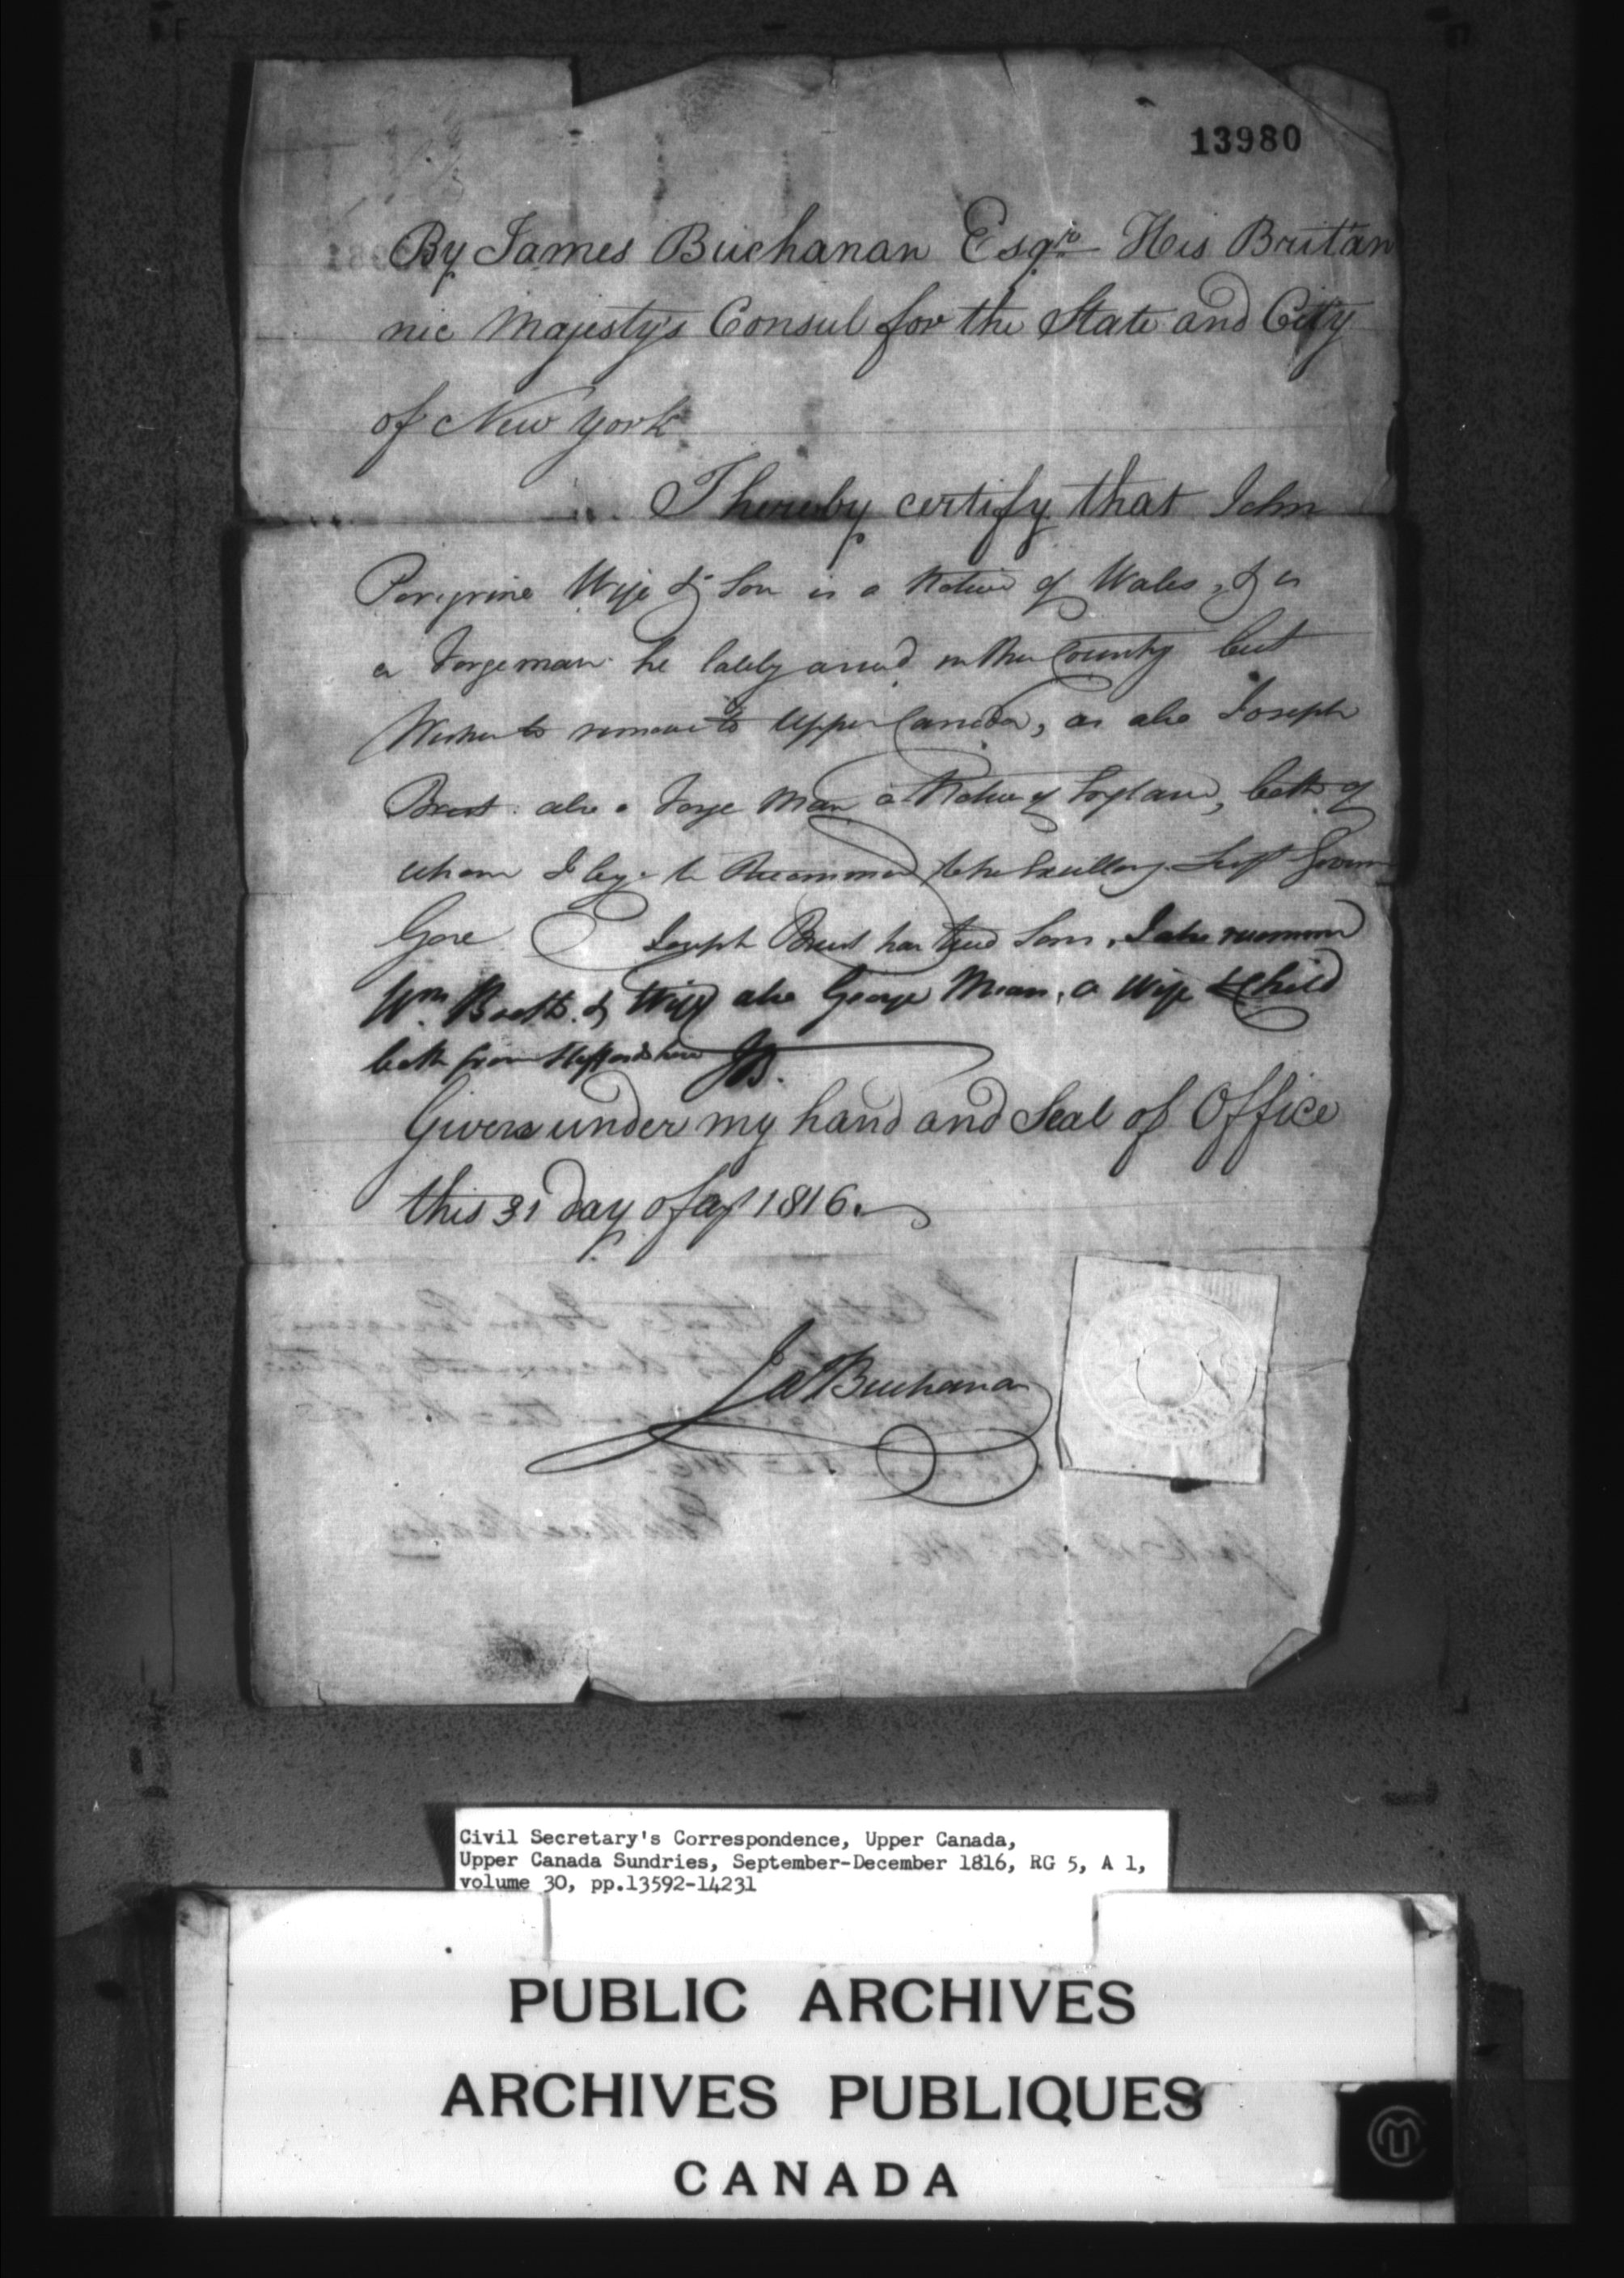 13980
By James Buchanan Esqre His Britan
nic Majesty's Consul for the State and City
of New York
I hereby certify that John
Peregrine Wife & Son is a Native of Wales, & is
a Forgeman he lately arrived in this Country but
Wishes to remove to Upper Canada, as also Joseph
also a Forge Man a Native of England, both of
whom I beg to Recommend to his Excellency Lieut Govern
Gore Joseph has two Sons, I also recommend
Wm Booth & Wife also George Mean, a Wife & Child
both from Staffordshire JB.
Given under my hand and Seal of Office
this 31 day of 1816.
Ja Buchanan
Civil Secretary's Correspondence, Upper Canada,
Upper Canada Sundries, September-December 1816, RG 5, A 1,
volume 30, pp.13592-14231
PUBLIC ARCHIVES
ARCHIVES PUBLIQUES
CANADA